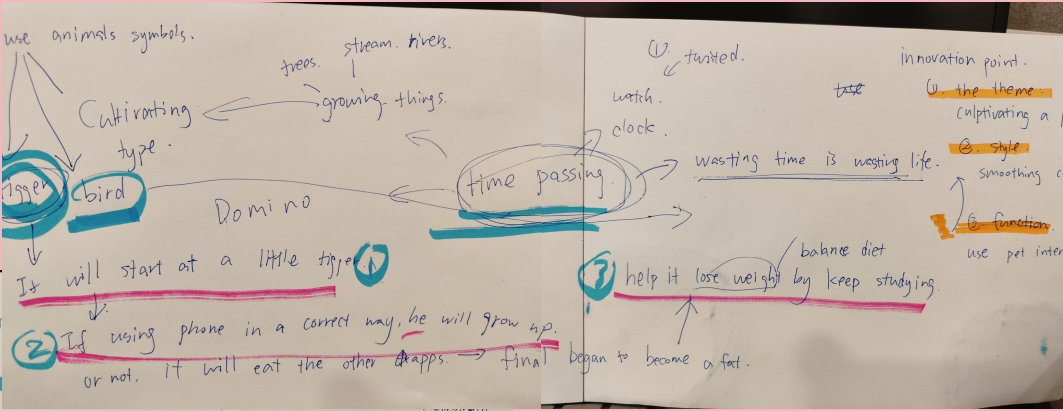 use animals symbols.
stream. rivers.
trees.
growing things.
Cultivating
type.
tigger
bird
Domino
time passing.
It will start at a little tigger. 1
2 If using phone in a correct way, he will grow up.
or not, it will eat the other apps. → final began to become a fat.
①. twisted.
watch.
clock.
wasting time is wasting life.
balance diet
3 help it lose weight by keep studying.
innovation point.
①. the theme.
culptivating a
②. style.
smoothing
③. function.
use pet inter